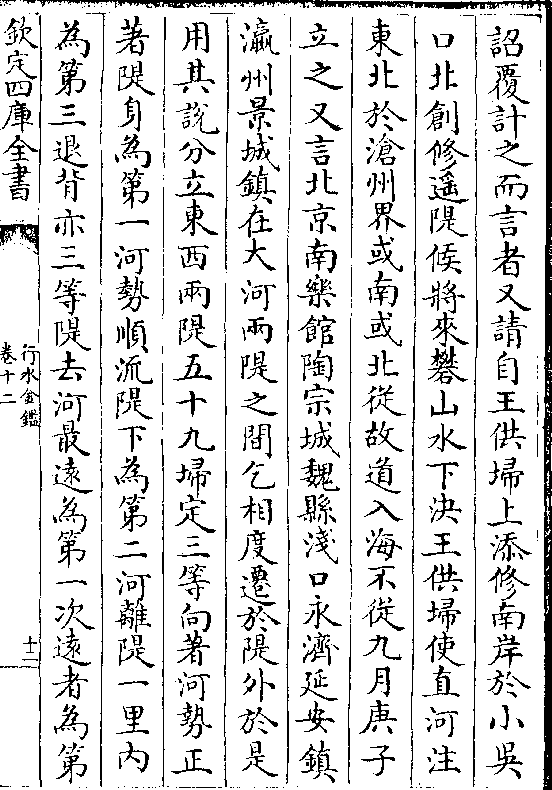 詔覆計之而言者又請自王供埽上添修南岸於小吳
口北創修遥隄候將來礬山水下決王供埽使直河注
東北於滄州界或南或北從故道入海不從九月庚子
立之又言北京南樂館陶宗城魏縣淺口永濟延安鎮
瀛州景城鎮在大河兩隄之間乞相度遷於隄外於是
用其說分立東西兩隄五十九埽定三等向著河勢正
著隄身為第一河勢順流隄下為第二河離隄一里内
為第三退背亦三等隄去河最遠為第一次遠者為第
欽定四庫全書
行水金鑑
卷十二
十二